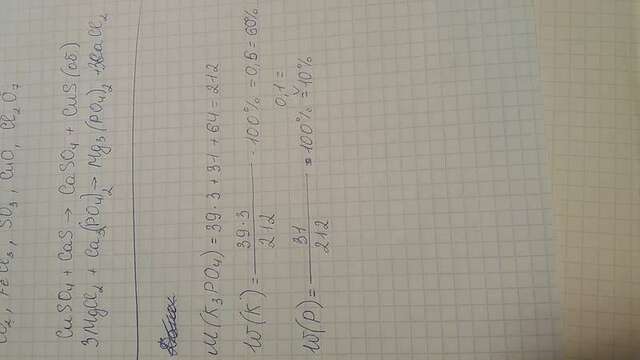 FeCl3, SO3, CuO, Cl2O7
CuSO4 + CaS → CaSO4 + CuS (об)
3MgCl2 + Ca3(PO4)2 → Mg3(PO4)2 + 3CaCl2
M(K3PO4) = 39·3 + 31 + 64 = 212
W(K) = 39·3 / 212 · 100% = 0,6 = 60%
W(P) = 31 / 212 · 100% = 0,1 = 10%